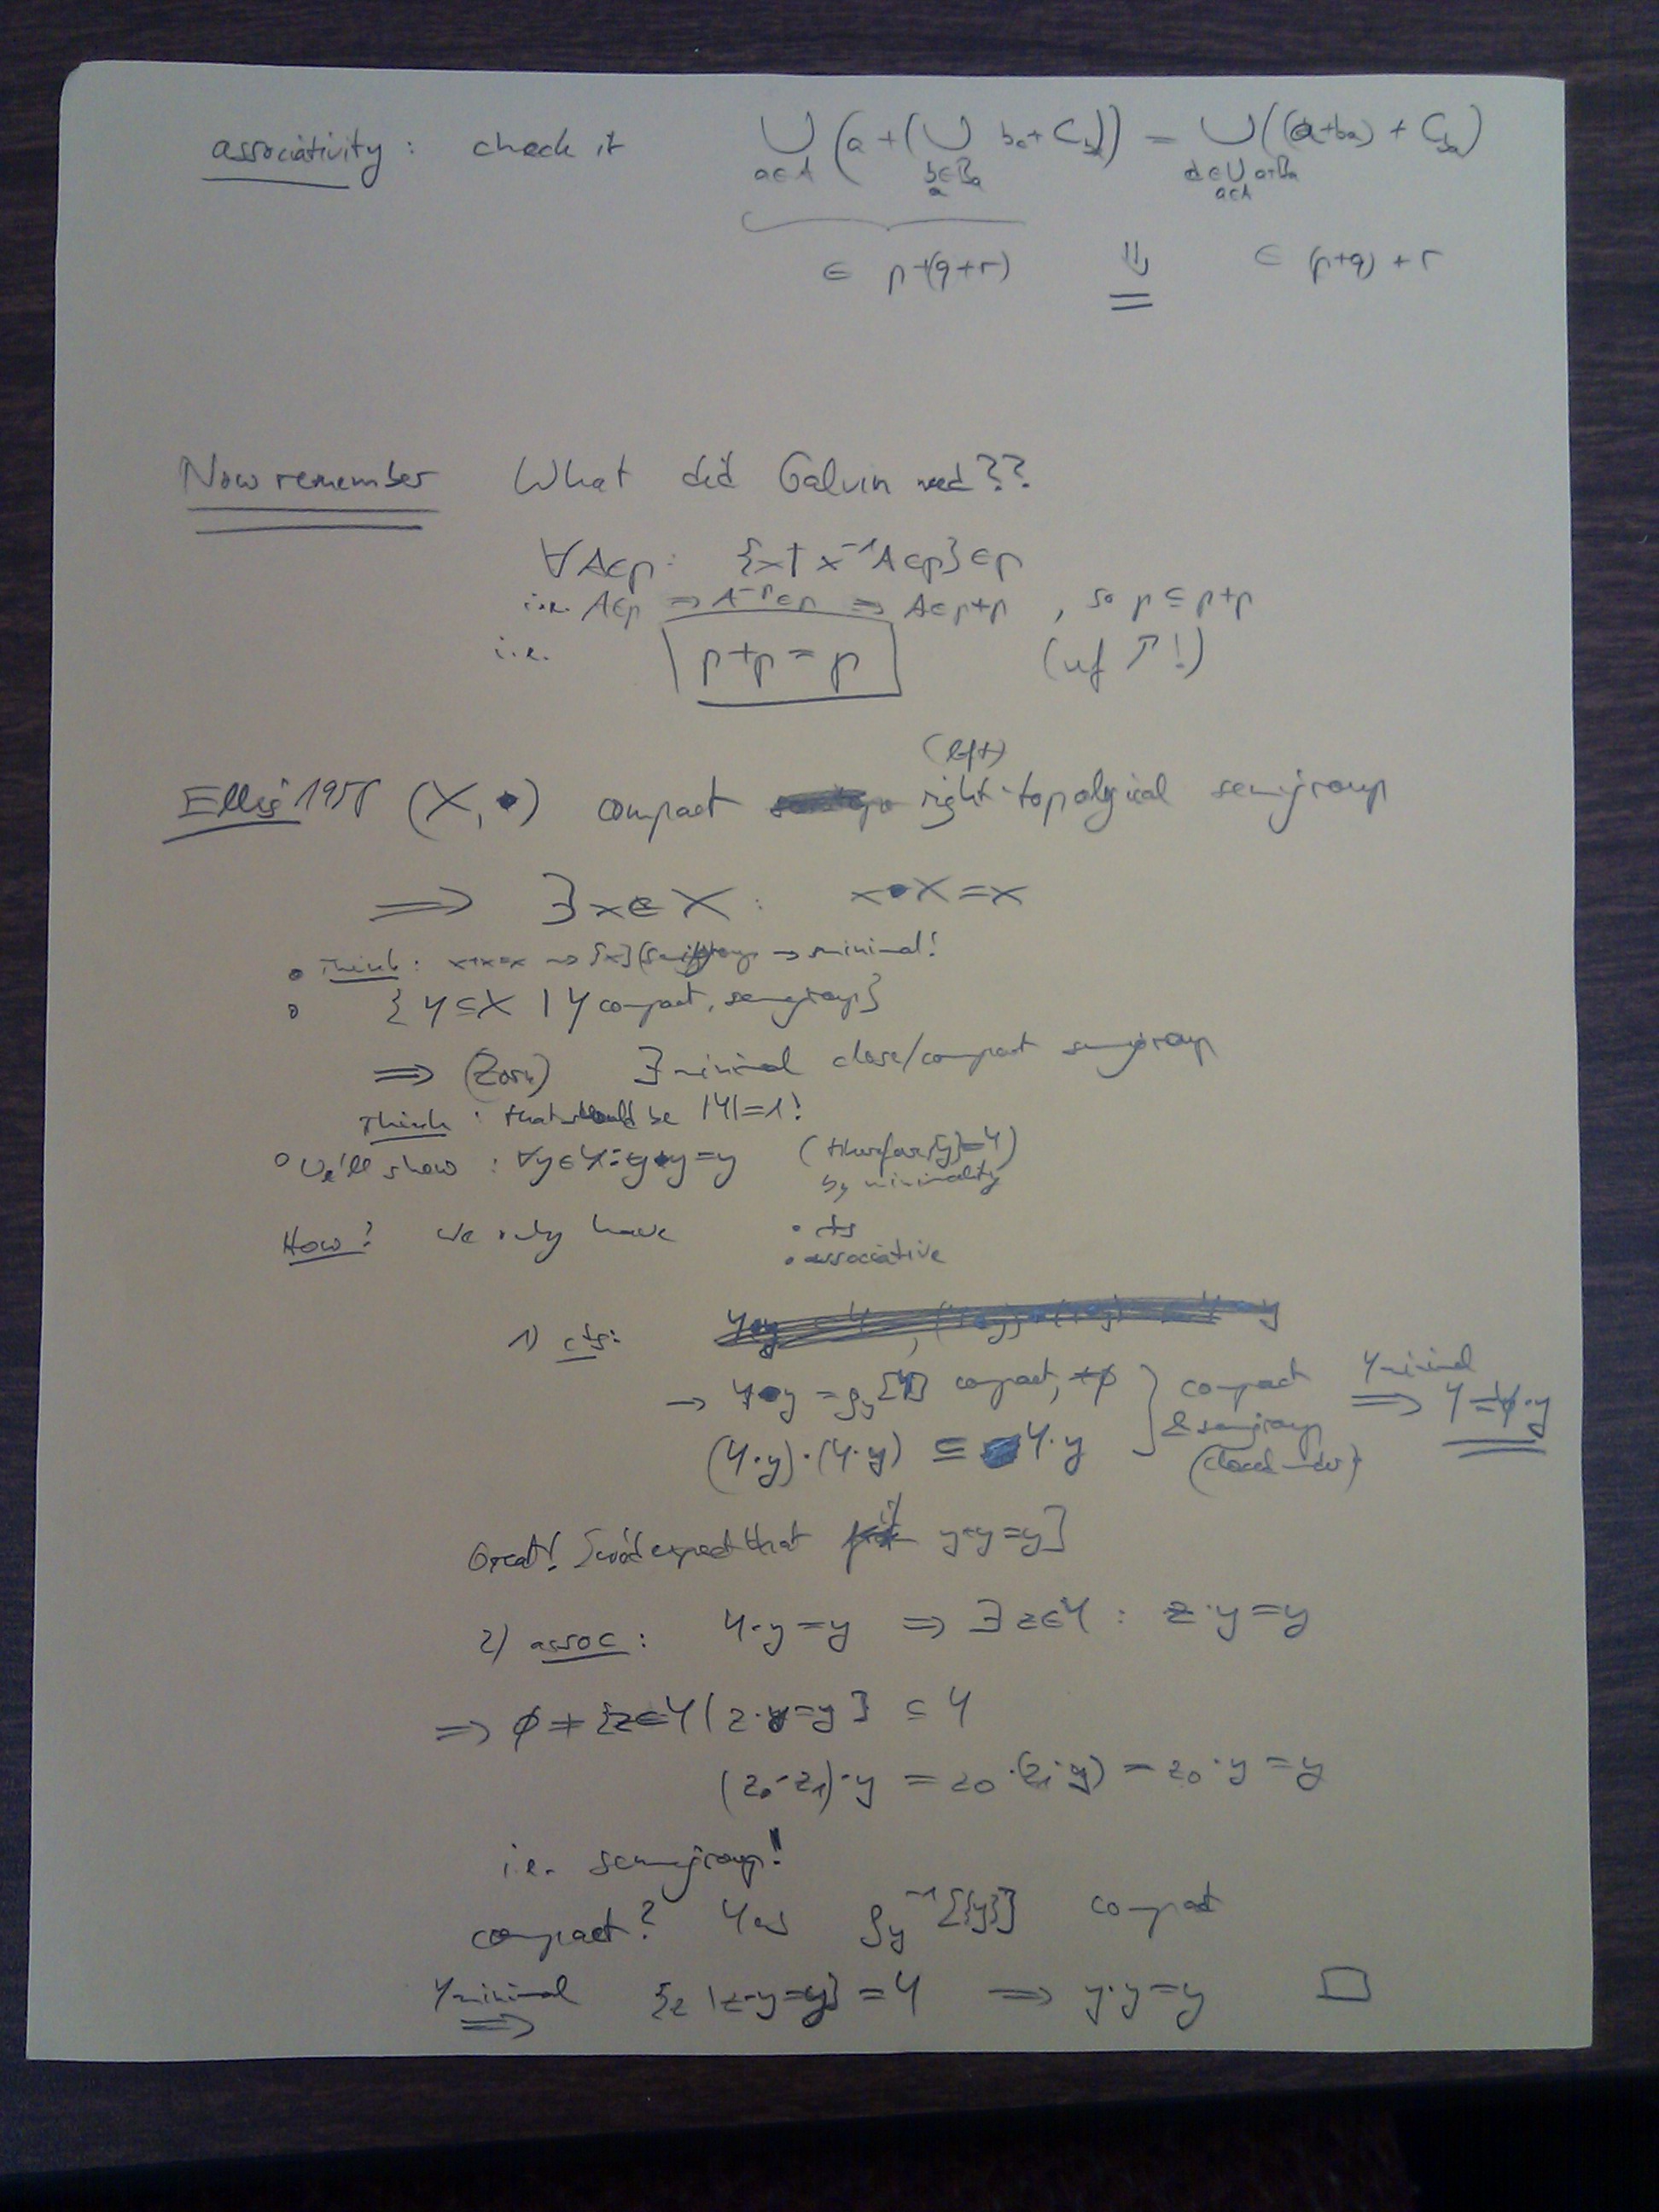 associativity: check it ⋃_{a∈A} (a + (⋃_{b∈B_a} b_a + C_{b_a})) = ⋃_{d∈⋃_{a∈A} a+B_a} ((a+b_a) + C_{b_a})
∈ p+(q+r) = ∈ (p+q)+r
Now remember What did Galvin need??
∀A∈p: {x | x⁻¹A∈p}∈p
i.e. A∈p ⇒ A⁻ᵖ∈p ⇒ A∈p+p, so p ⊆ p+p
i.e. p+p = p (uf ↗!)
(left)
Ellis 1958 (X, •) compact right-topological semigroup
⇒ ∃x∈X: x•x=x
• Think: x•x=x ⇝ {x} semigroup → minimal!
• {Y⊆X | Y compact, semigroup}
⇒ (Zorn) ∃ minimal close/compact semigroup
Think: that should be |Y|=1!
• We'll show: ∀y∈Y: y•y=y (therefore {y}=Y)
by minimality
How? We only have • cts
• associative
1) cts:
→ Y•y = ρ_y[Y] compact, ≠∅ } compact ⇒ (Y minimal) Y=Y·y
(Y·y)·(Y·y) ⊆ Y·y & semigroup
(closed under)
Great! [we'd expect that if y·y=y]
2) assoc: Y·y=y ⇒ ∃z∈Y: z·y=y
⇒ ∅ ≠ {z∈Y | z·y=y} ⊆ Y
(z₀·z₁)·y = z₀·(z₁·y) = z₀·y = y
i.e. semigroup!
compact? Yes ρ_y⁻¹[{y}] compact
Y minimal ⇒ {z | z·y=y} = Y ⇒ y·y=y □